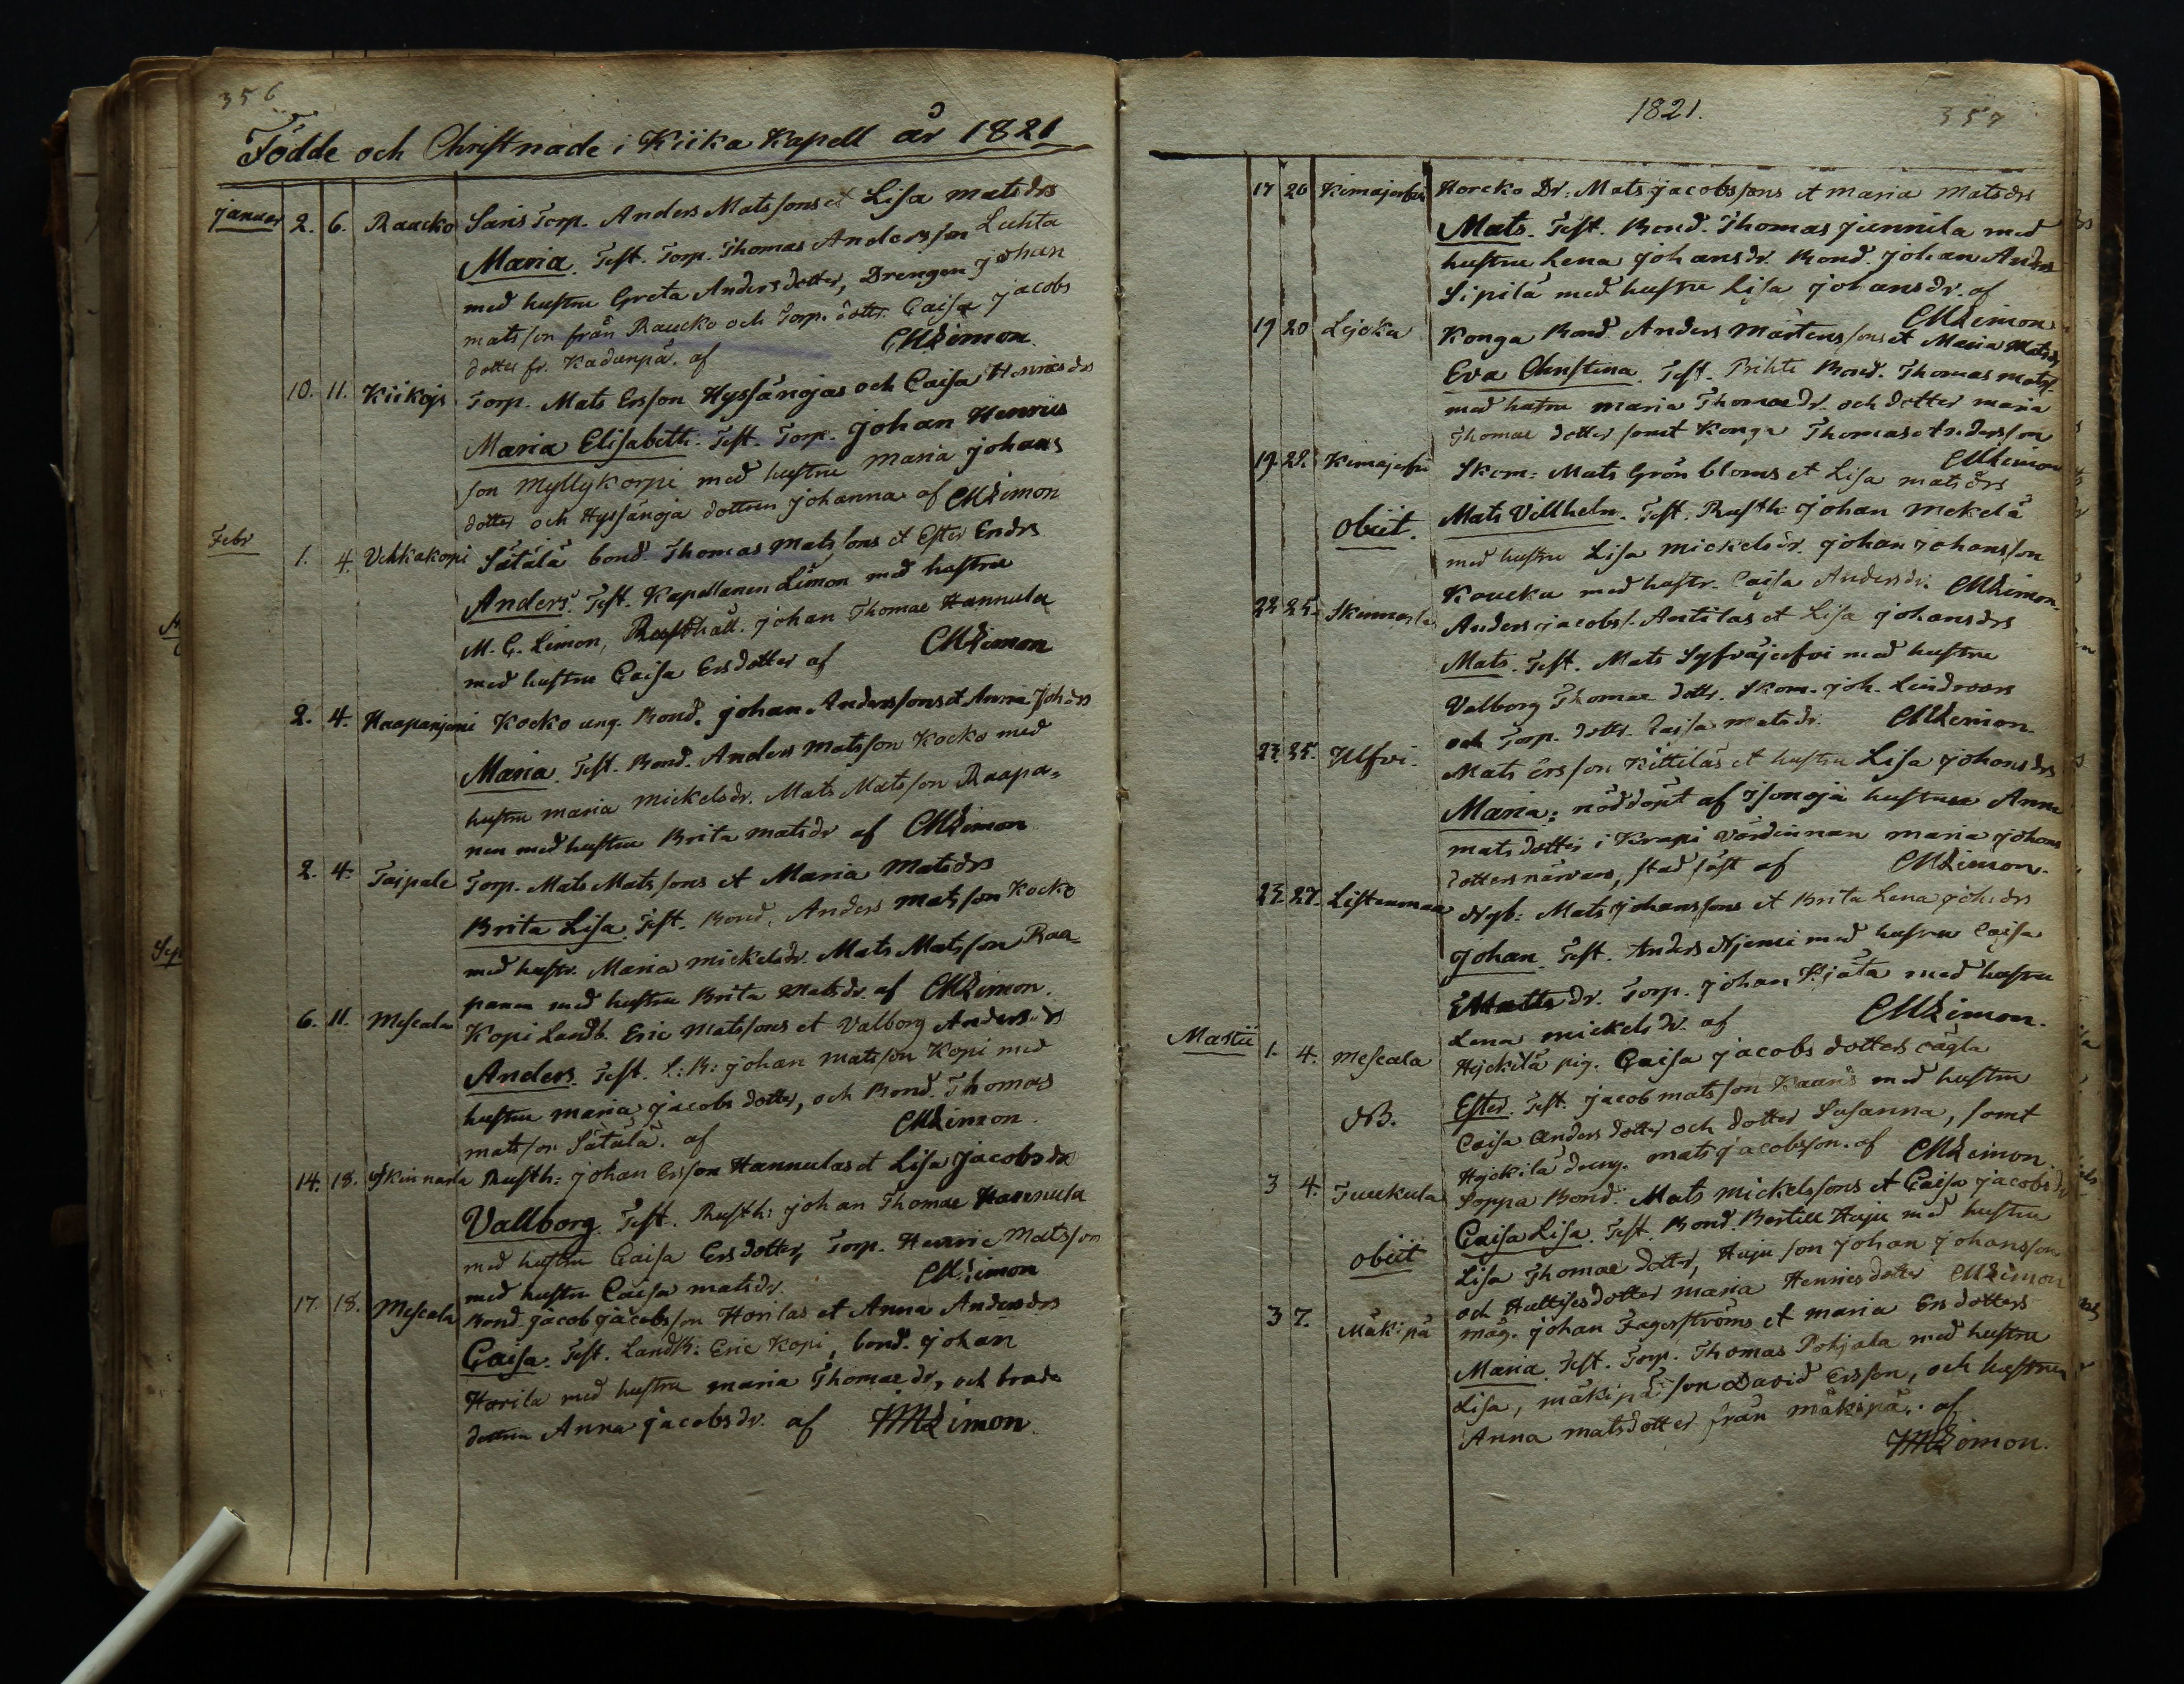 356
Födde och Christnade i Kiika Kapell år 1821
Januar 2. 6. Raucko Saris Torp. Anders Matssons et Lisa Matsdrs
Maria. Test. Torp. Thomas Andersson Luhta
med hustru Greta Andersdotter, Drengen Johan
Matsson från Raucko och Torp. dottr. Caisa Jacobs
dotter fr. Kadunpä. af CMLimon.
10. 11. Kiikojs Torp. Mats Ersson Hyssänojas och Caisa Henricsdrs
Maria Elisabeth. Test. Torp. Johan Henrics
son Myllykorpi med hustru Maria Johans
dotter och Hyssänoja dottren Johanna af CMLimon
Febr 1. 4. Vehkakopi Sätälä bond. Thomas Matssons et Ester Endrs
Anders. Test. Kapellanen Limon med hustru
M. C. Limon, Rusthåll. Johan Thomae Hannula
med hustru Caisa Ersdotter af CMLimon
2. 4. Haapanjemi Kocko ung. Bond. Johan Anderssons et Anna Johdrs
Maria. Test. Bond. Anders Matsson Kocko med
hustru Maria Mickelsdr. Mats Matsson Raapa=
nen med hustru Brita Matsdr af CMLimon
2. 4. Taipale Torp. Mats Matssons et Maria Matsdrs
Brita Lisa. Test. Bond. Anders Matsson Kocko
med hustr. Maria Mickelsdr. Mats Matsson Raa=
panen med hustru Brita Matsdr. af CMLimon.
6. 11. Mescala Kopi Landb. Eric Matssons et Valborg Andersdrs
Anders. Test. L:B: Johan Matsson Kopi med
hustru Maria Jacobs dotter, och Bond. Thomas
Matsson Sätälä. af CMLimon.
14. 18. Skinnarla Rusth: Johan Ersson Hannulas et Lisa Jacobsdrs
Vallborg. Test. Rusth: Johan Thomae Hannula
med hustru Caisa Ersdotter, Torp. Henric Matsson
med hustru Caisa Matsdr. CMLimon
17. 18. Mescala Bond. Jacob Jacobsson Horilas et Anna Andersdrs
Caisa. Test. LandB: Eric Kopi, bond. Johan
Horila med hustru Maria Thomaedr, och
dottren Anna Jacobsdr. af CMLimon.
1821.
357
17 20 Kimajerfvi Horcko Dr: Mats Jacobssons et Maria Matsdrs
Mats. Test. Bond. Thomas Junnila med
hustru Lena Johansdr. Bond. Johan Anders
Sipilä med hustru Lisa Johansdr. af
CMLimon
19 20 Lejoka Konga Bond. Anders Mårtenssons et Maria Matsdrs
Eva Christina. Test. Prihti Bond. Thomas Matss.
med hustru Maria Thomaedr. och dotter Maria
Thomae dotter samt Konga Thomas Andersson
CMLimon
19. 22. Kimajerfvi Skom: Mats Grönbloms et Lisa Matsdrs
Obiit. Mats Villhelm. Test. Rusth: Johan Mekelä
med hustru Lisa Mickelsdr. Johan Johansson
Koucku med hustr. Caisa Andersdr. CMLimon.
22 25. Skinnarla Anders Jacobs. Antilas et Lisa Johansdrs
Mats. Test. Mats Syfväjerfvi med hustru
Valborg Thomae dottr. Skom. Joh. Lindroos
och Torp. dottr. Caisa Matsdr. CMLimon.
23. 25. Ulfvi. Mats Ersson Kittiläs et hustru Lisa Johansdrs
Maria: nöddöpt af Isonoja hustrun Anna
Matsdotter i Krapi värdinnan Maria Johans
dotters närvaro, stadfäst af CMLimon.
23. 27. Listenmaa Nyb: Mats Johanssons et Brita Lena Johdrs
Johan. Test. Anders Njemi med hustru Caisa
Mattsdr. Torp. Johan Kjäta med hustru
Lena Mickelsdr. af CMLimon.
Martii 1. 4. Mescala Hyckilä pig. Caisa Jacobs dotters oägta
NB. Ester. Test. Jacob Matsson Kaanä med hustru
Caisa Anders dotter och dotter Susanna, samt
Hyckilä dreng. Mats Jacobsson. af CMLimon.
3 4. Tuukula Soppa Bond. Mats Mickelssons et Caisa Jacobsdr
Caisa Lisa. Test. Bond. Bertill Huju med hustru
obiit Lisa Thomae dotter, Huju son Johan Johansson
och dotter Maria Henrics dotter CMLimon
3 7. Mäkipä måg. Johan Fagerströms et Maria Ersdotters
Maria. Test. Torp. Thomas Pohjala med hustru
Lisa, Mäkipä son David Ersson, och hustrun
Anna Matsdotter från Mäkipä. af
CMLimon.